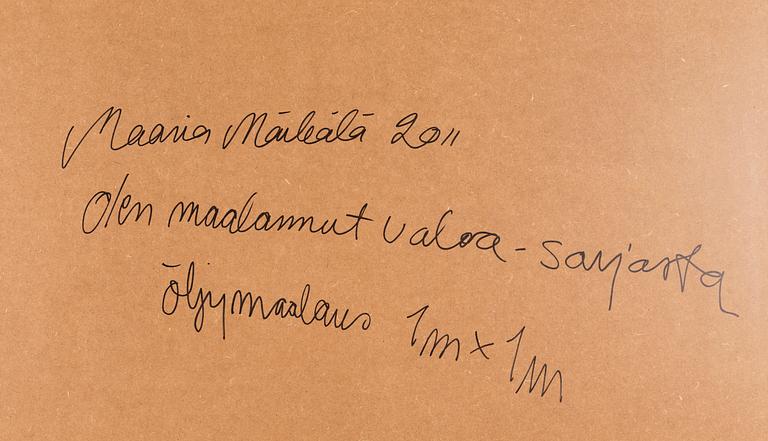 Maaria Märkälä 2011
Olen maalannut valoa - sarjasta
öljymaalaus 1m x 1m